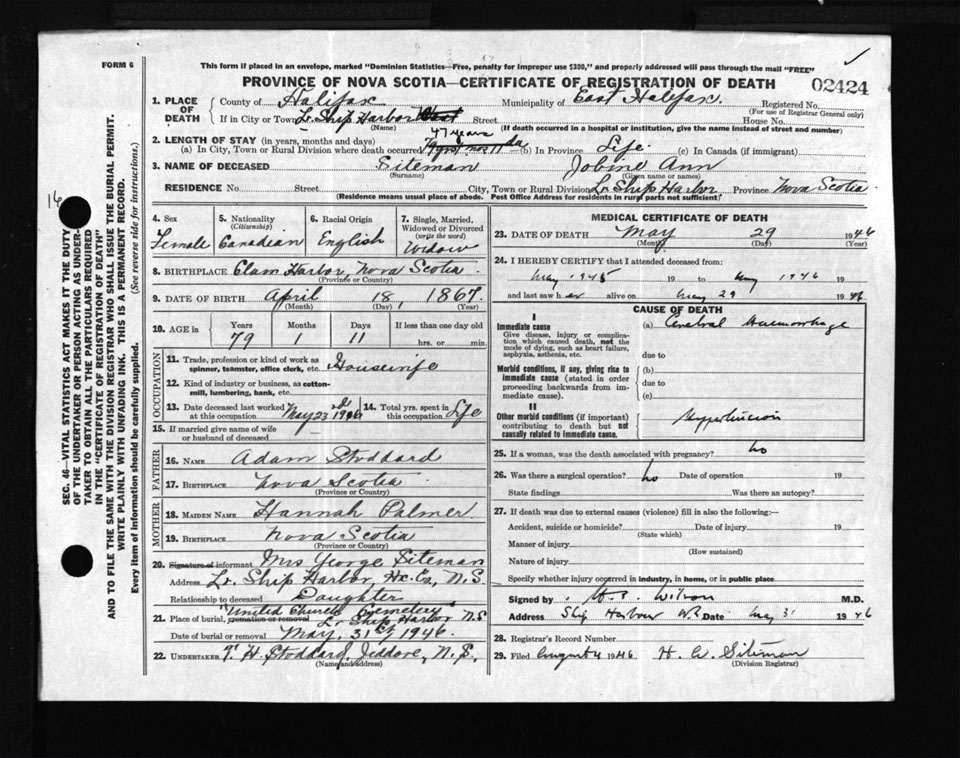 FORM 6
This form if placed in an envelope, marked "Dominion Statistics—Free, penalty for improper use $300," and properly addressed will pass through the mail "FREE"
PROVINCE OF NOVA SCOTIA—CERTIFICATE OF REGISTRATION OF DEATH
02424
1. PLACE OF DEATH County of Halifax Municipality of East Halifax. Registered No.
(For use of Registrar General only)
If in City or Town Lr Ship Harbor East Street House No.
(Name) (If death occurred in a hospital or institution, give the name instead of street and number)
2. LENGTH OF STAY (in years, months and days) 47 years
(a) In City, Town or Rural Division where death occurred (b) In Province Life. (c) In Canada (if immigrant)
3. NAME OF DECEASED Siteman Jobine Ann
(Surname) (Given name or names)
RESIDENCE No. Street City, Town or Rural Division Lr Ship Harbor Province Nova Scotia
(Residence means usual place of abode. Post Office Address for residents in rural parts not sufficient)
16
SEC. 46—VITAL STATISTICS ACT MAKES IT THE DUTY
OF THE UNDERTAKER OR PERSON ACTING AS UNDER-
TAKER TO OBTAIN ALL THE PARTICULARS REQUIRED
IN THE "CERTIFICATE OF REGISTRATION OF DEATH"
AND TO FILE THE SAME WITH THE DIVISION REGISTRAR WHO SHALL ISSUE THE BURIAL PERMIT.
WRITE PLAINLY WITH UNFADING INK. THIS IS A PERMANENT RECORD.
Every item of information should be carefully supplied. (See reverse side for instructions.)
4. Sex Female
5. Nationality (Citizenship) Canadian
6. Racial Origin English
7. Single, Married, Widowed or Divorced (write the word) Widow
8. BIRTHPLACE Clam Harbor, Nova Scotia.
(Province or Country)
9. DATE OF BIRTH April 18, 1867.
(Month) (Day) (Year)
10. AGE in Years Months Days If less than one day old
79 1 11 hrs. or min.
OCCUPATION
11. Trade, profession or kind of work as spinner, teamster, office clerk, etc. Housewife
12. Kind of industry or business, as cotton-mill, lumbering, bank, etc.
13. Date deceased last worked at this occupation May 23rd 1946
14. Total yrs. spent in this occupation Life
15. If married give name of wife or husband of deceased
FATHER
16. NAME Adam Stoddard
17. BIRTHPLACE Nova Scotia
(Province or Country)
MOTHER
18. MAIDEN NAME Hannah Palmer
19. BIRTHPLACE Nova Scotia
(Province or Country)
20. Signature of informant Mrs George Siteman
Address Lr. Ship Harbor, Hx. Co., N.S.
Relationship to deceased Daughter
21. Place of burial, cremation or removal United Church Cemetery Lr Ship Harbor N.S
Date of burial or removal May, 31st, 1946.
22. UNDERTAKER T. H. Stoddard, Jeddore, N.S.,
(Name and address)
MEDICAL CERTIFICATE OF DEATH
23. DATE OF DEATH May 29 1946
(Month) (Day) (Year)
24. I HEREBY CERTIFY that I attended deceased from:
May 1945 19 to May 1946 19
and last saw her alive on May 29 1946
CAUSE OF DEATH
I
Immediate cause (a) Cerebral Haemorrhage
Give disease, injury or complica-
tion which caused death, not the
mode of dying, such as heart failure,
asphyxia, asthenia, etc.
due to
Morbid conditions, if any, giving rise to
immediate cause (stated in order
proceeding backwards from im-
mediate cause).
(b)
due to
(c)
II
Other morbid conditions (if important)
contributing to death but not
causally related to immediate cause.
Hypertension
25. If a woman, was the death associated with pregnancy? no
26. Was there a surgical operation? no Date of operation 19
State findings Was there an autopsy?
27. If death was due to external causes (violence) fill in also the following:—
Accident, suicide or homicide? Date of injury 19
(State which)
Manner of injury
(How sustained)
Nature of injury
Specify whether injury occurred in industry, in home, or in public place
Signed by Wilson M.D.
Address Ship Harbour Date May 31 1946
28. Registrar's Record Number
29. Filed August 4 1946 H. W. Siteman
(Division Registrar)